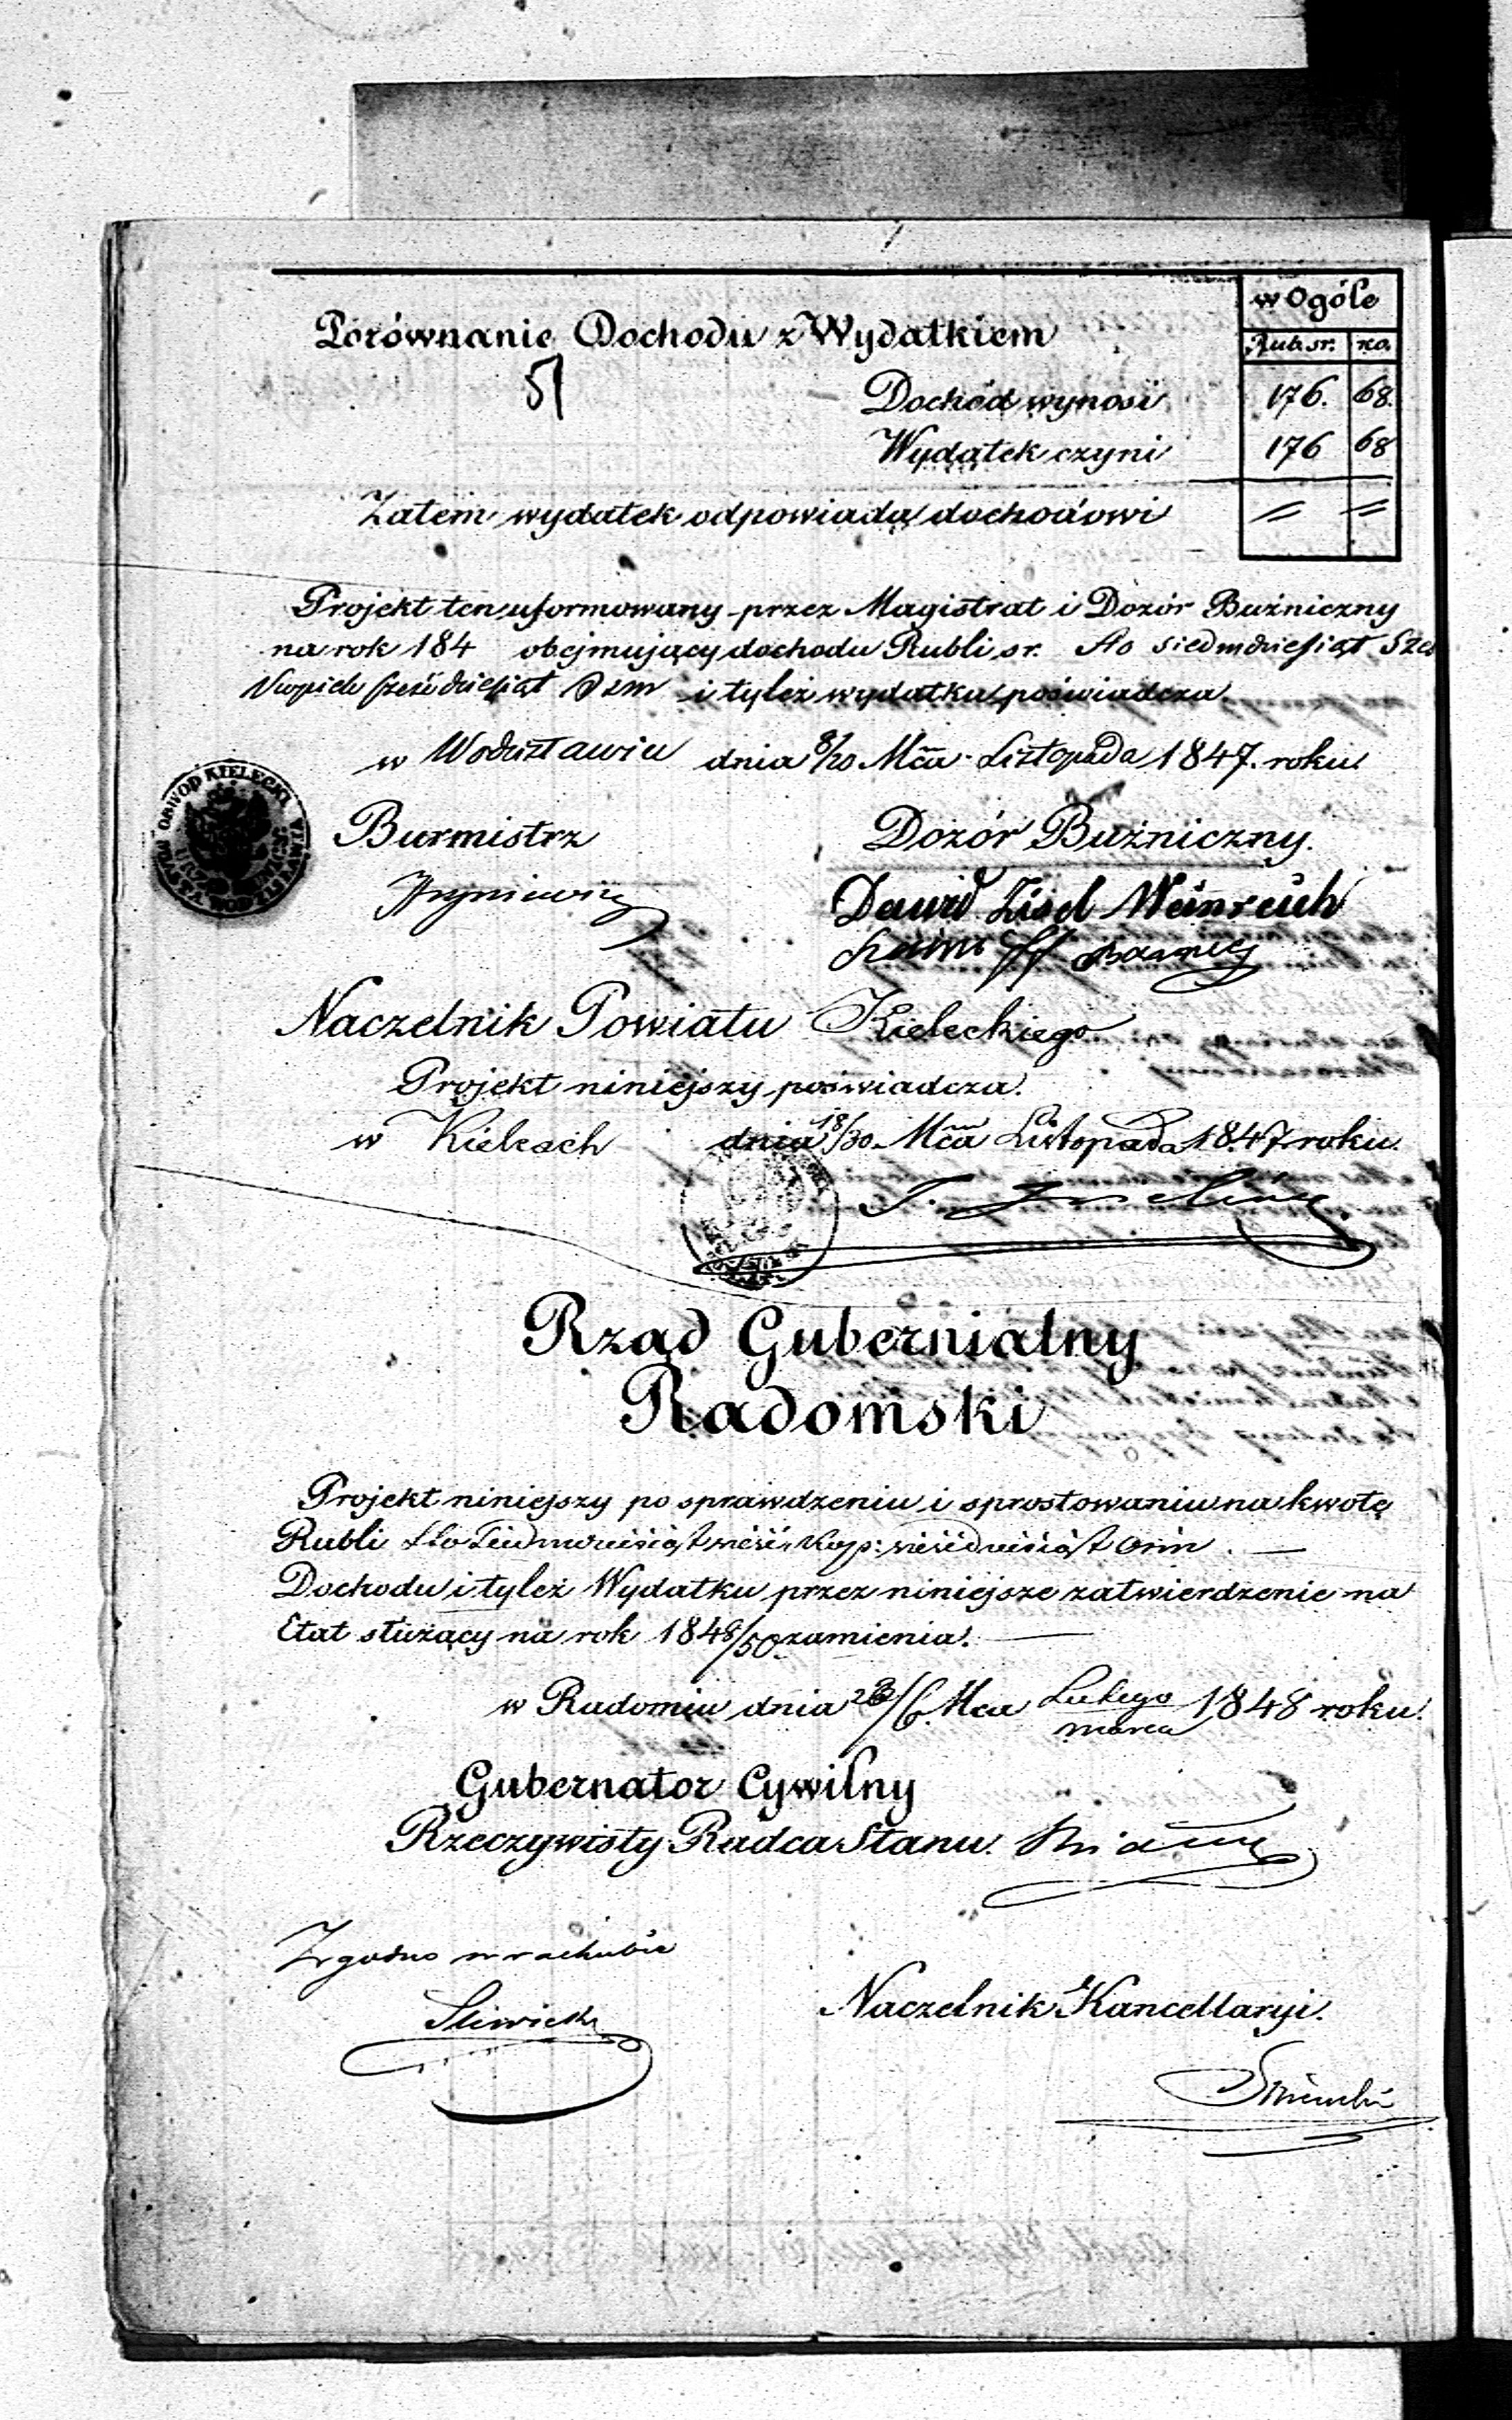 w Ogóle
Porównanie Dochodu z Wydatkiem
Rub. sr. ko.
51
Dochód wynosi 176. 68.
Wydatek czyni 176 68
Zatem wydatek odpowiada dochodowi = =
Projekt ten uformowany przez Magistrat i Dozór Bużniczny
na rok 184 obejmujący dochodu Rubli sr. sto siedmdziesiąt Sześć
kopiek sześćdziesiąt Osm i tyleż wydatku, poświadcza
w Wodzisławiu dnia 8/20 Mca Listopada 1847. roku.
OBWÓD KIELECKI
Burmistrz Dozór Bużniczny.
Hryniewicz Dawid Zisel Weinreich
Naczelnik Powiatu Kieleckiego
Projekt niniejszy poświadcza.
w Kielcach dnia 18/30 Mca Listopada 1847 roku.
Rząd Gubernialny
Radomski
Projekt niniejszy po sprawdzeniu i sprostowaniu na kwotę
Rubli Sto Siedmdziesiąt sześć, kop: sześćdziesiąt ośm. —
Dochodu i tyleż Wydatku przez niniejsze zatwierdzenie na
Etat służący na rok 1848/50 zamienia. —
w Radomiu dnia 23/6 Mca Lutego 1848 roku.
marca
Gubernator Cywilny
Rzeczywisty Radca Stanu.
Zgodno w rachubie
Naczelnik Kancellaryi.